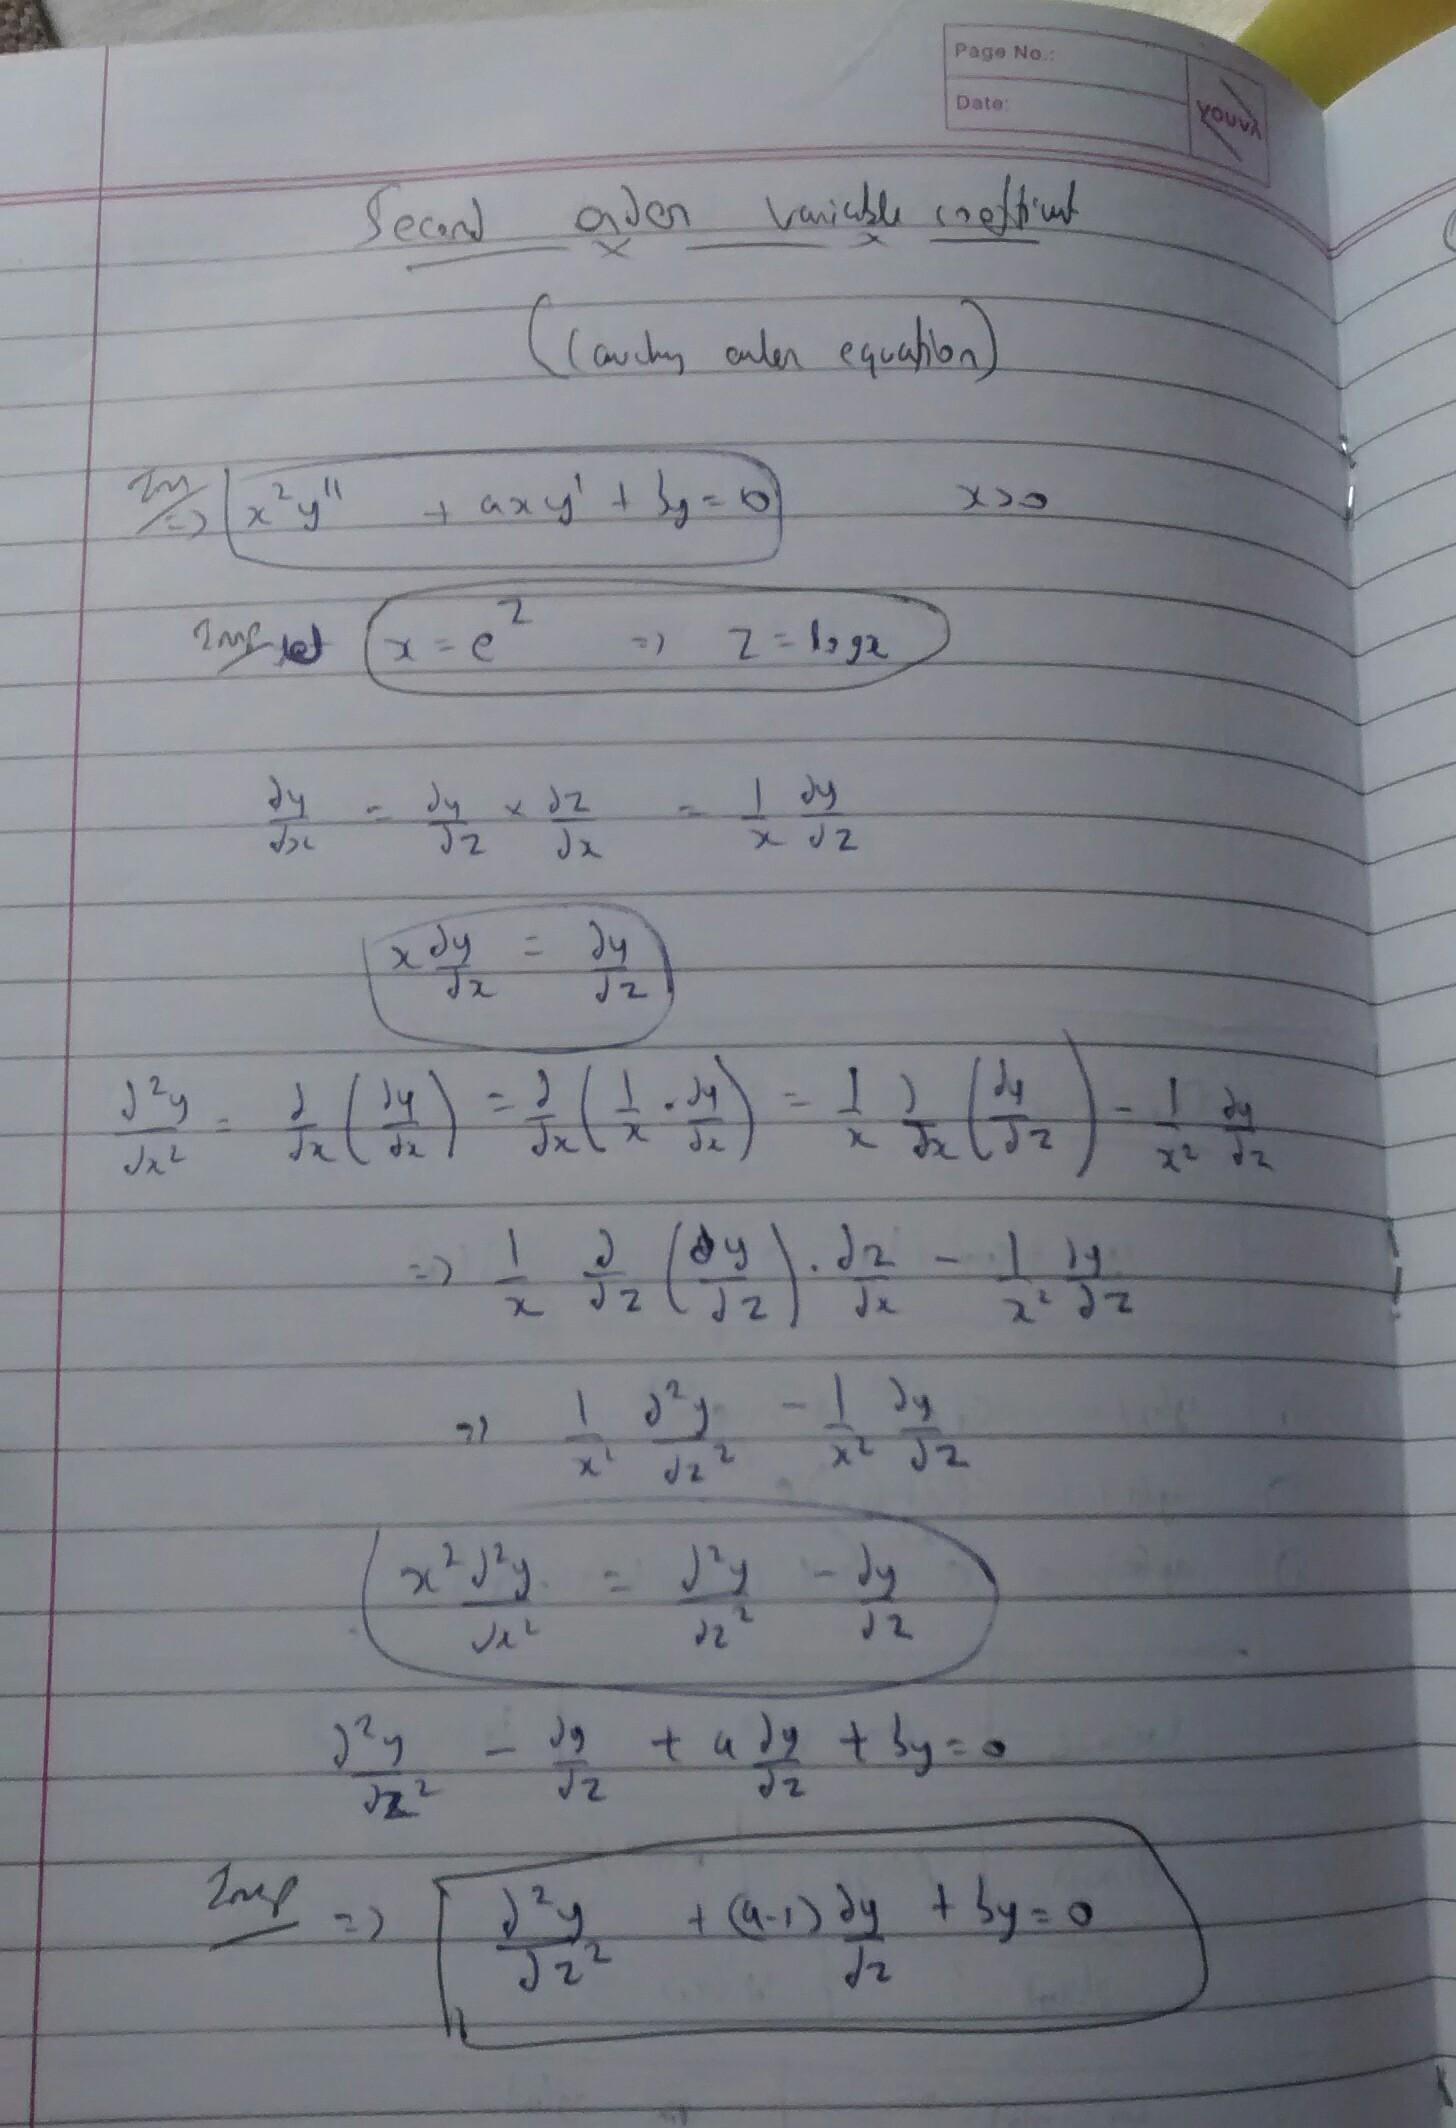 Page No.:
Date:
YOUVA
Second order variable coefficient
(Cauchy euler equation)
=> x²y'' + axy' + by = 0 x>0
Imp let x = e^z => z = logx
dy/dx = dy/dz × dz/dx = 1/x dy/dz
x dy/dx = dy/dz
d²y/dx² = d/dx (dy/dx) = d/dx (1/x . dy/dx) = 1/x d/dx (dy/dz) - 1/x² dy/dz
=> 1/x d/dz (dy/dz) . dz/dx - 1/x² dy/dz
=> 1/x² d²y/dz² - 1/x² dy/dz
x² d²y/dx² = d²y/dz² - dy/dz
d²y/dz² - dy/dz + a dy/dz + by = 0
Imp => d²y/dz² + (a-1) dy/dz + by = 0